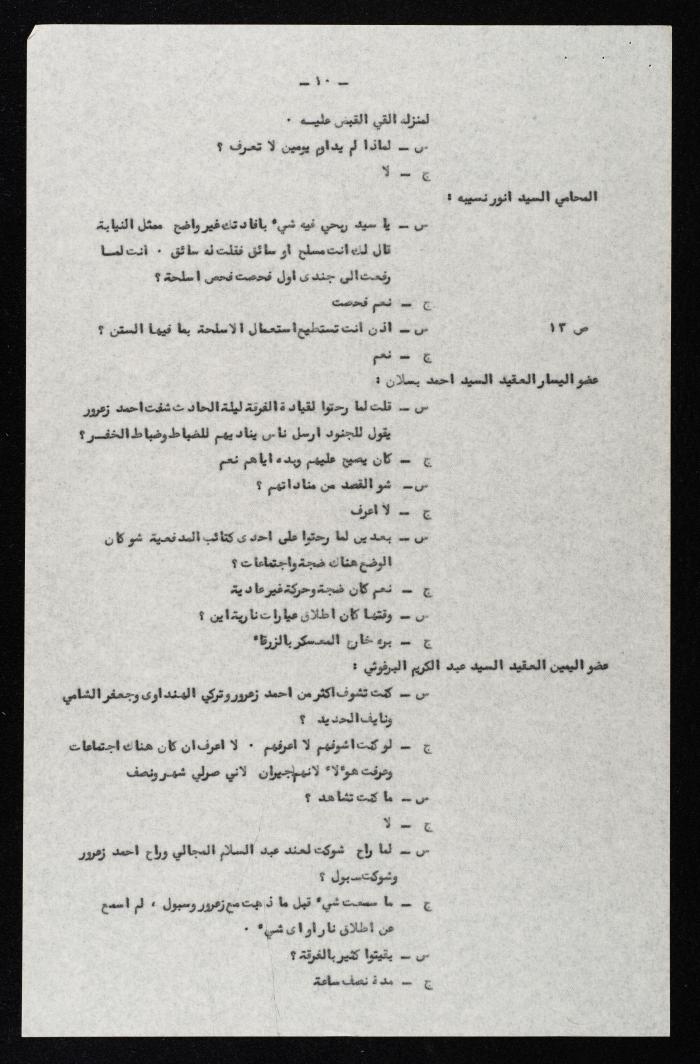 - ١٠ -
لمنزله القي القبض عليه .
س - لماذا لم يداوم يومين لا تعرف ؟
ج - لا
المحامي السيد انور نسيبه :
س - يا سيد ربحي فيه شيء بافادتك غير واضح ممثل النيابة
قال لك انت مسلح او سائق فقلت له سائق . انت لما
رفعت الى جندى اول فحصت فحص اسلحة ؟
ج - نعم فحصت
س - اذن انت تستطيع استعمال الاسلحة بما فيها الستن ؟ ص ١٣
ج - نعم
عضو اليسار العقيد السيد احمد بسلان :
س - قلت لما رحتوا لقيادة الفرقة ليلة الحادث شفت احمد زعرور
يقول للجنود ارسل ناس يناديهم للضباط وضباط الخفر ؟
ج - كان يصيح عليهم وبده اياهم نعم
س - شو القصد من مناداتهم ؟
ج - لا اعرف
س - بعدين لما رحتوا على احدى كتائب المدفعية شو كان
الوضع هناك ضجة واجتماعات ؟
ج - نعم كان ضجة وحركة غير عادية
س - وقتها كان اطلاق عيارات نارية اين ؟
ج - بره خارج المعسكر بالزرقاء
عضو اليمين العقيد السيد عبد الكريم البرغوثي :
س - كنت تشوف اكثر من احمد زعرور وتركي الهنداوى وجعفر الشامي
ونايف الحديد ؟
ج - لو كنت اشوفهم لا اعرفهم . لا اعرف ان كان هناك اجتماعات
وعرفت هؤلاء لانهم جيران لاني صرلي شهر ونصف
س - ما كنت تشاهد ؟
ج - لا
س - لما راح شوكت لعند عبد السلام المجالي وراح احمد زعرور
وشوكت سبول ؟
ج - ما سمعت شيء قبل ما ذهبت مع زعرور وسبول ، لم اسمع
عن اطلاق نار او اى شيء .
س - بقيتوا كثير بالفرقة ؟
ج - مدة نصف ساعة